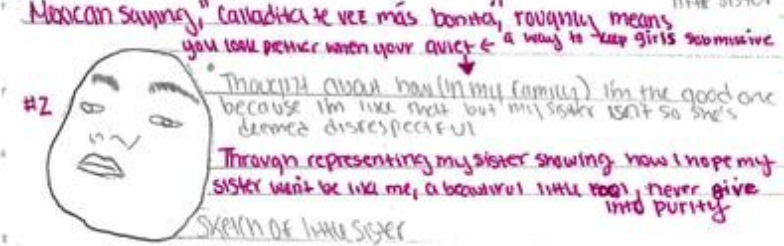 little sister
Mexican saying, "calladita te vez más bonita," roughly means
you look pettier when your quiet ← a way to keep girls submissive
#2
Thought about how (in my family) I'm the good one
because I'm like that but my sister isn't so she's
deemed disrespectful
Through representing my sister showing how I hope my
sister won't be like me, a beautiful little fool, never give
into purity
Sketch of little sister